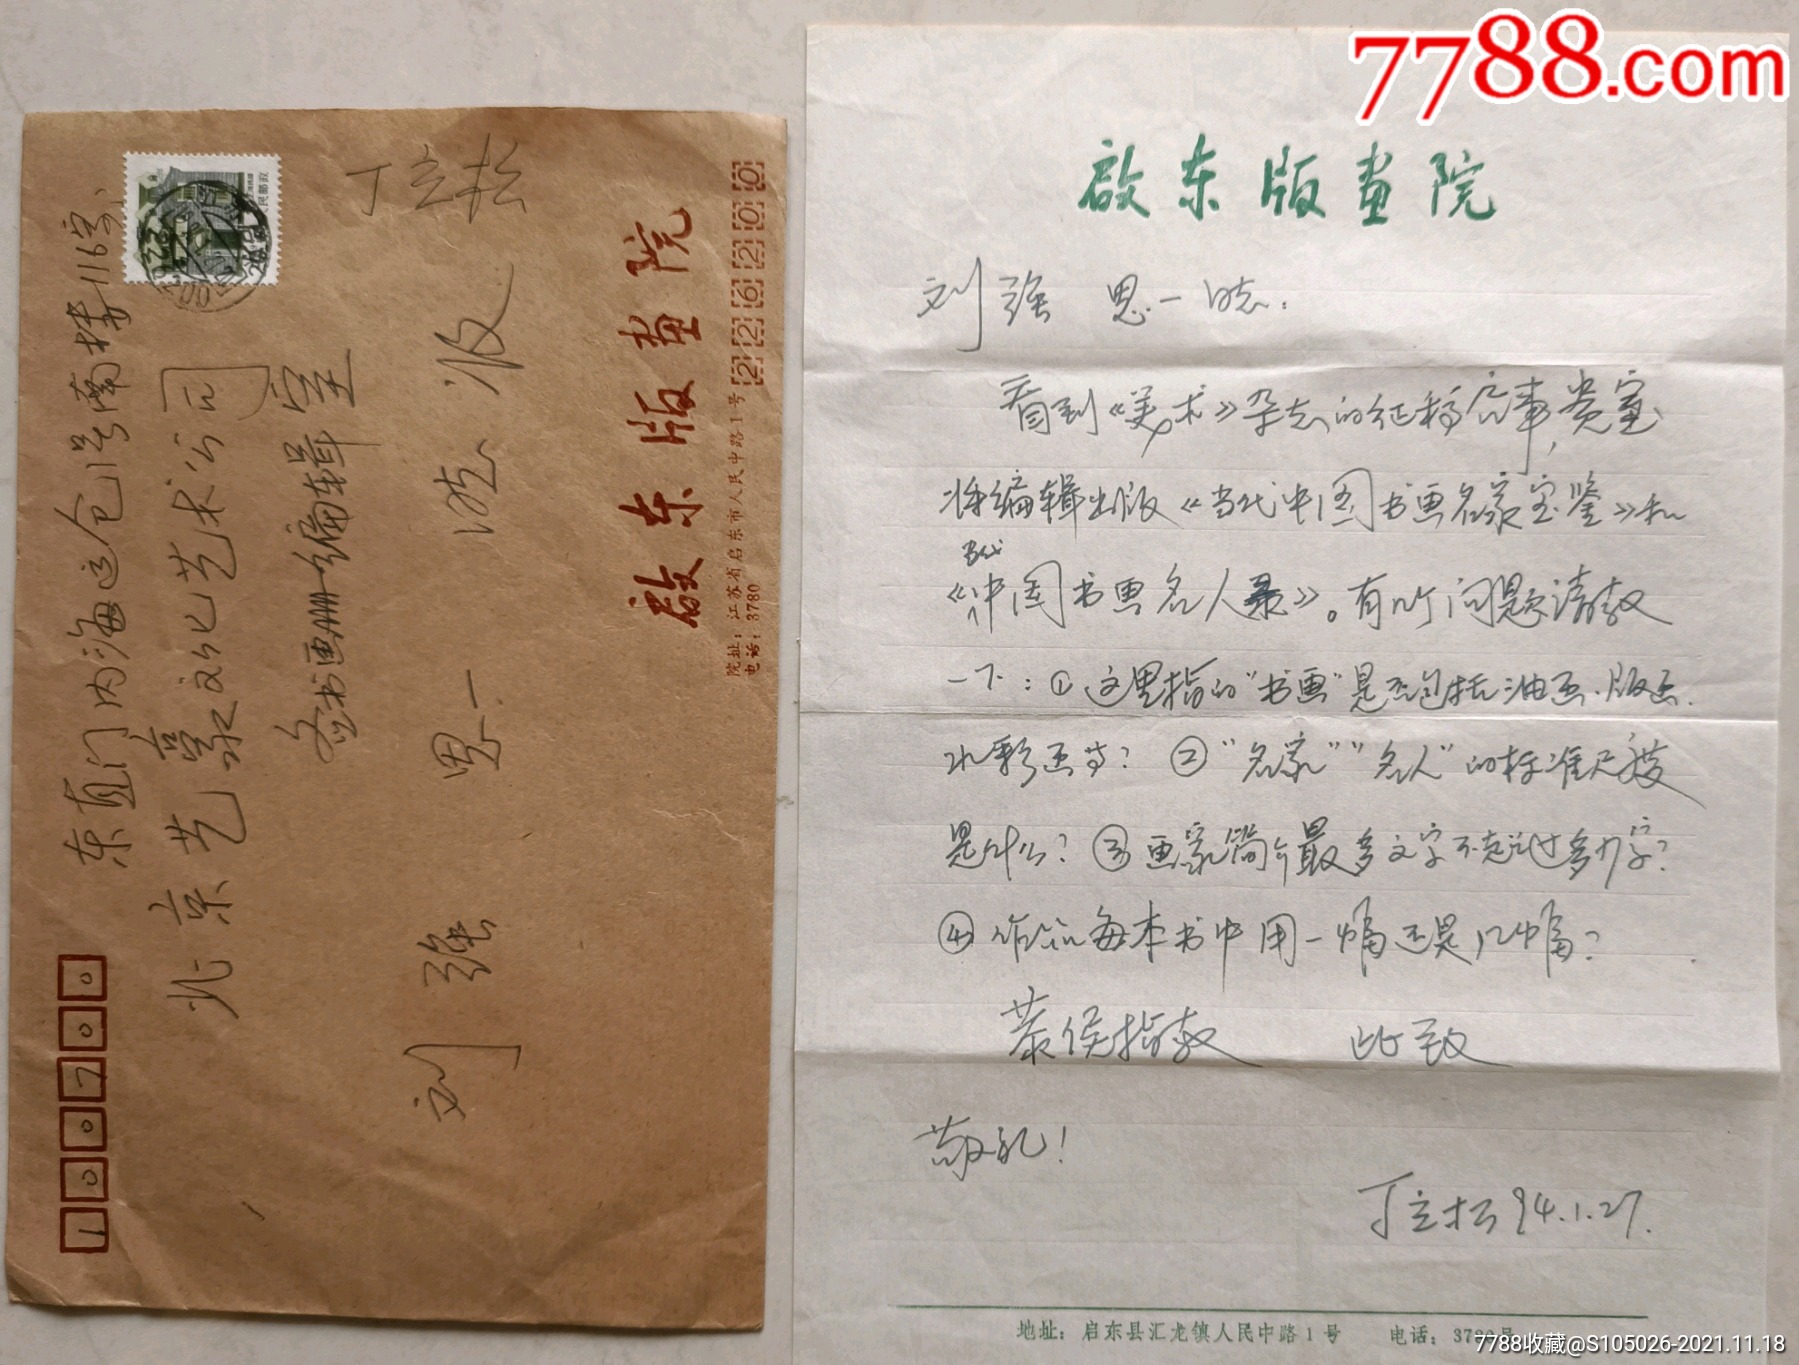 7788.com
启东版画院
刘强 思一 同志：
看到《美术》杂志的征稿启事，贵室
将编辑出版《当代中国书画名家宝鉴》和
当代
《中国书画名人录》。有几个问题请教
一下：①这里指的"书画"是否包括油画、版画、
水彩画等？②"名家""名人"的标准尺度
是什么？③画家简介最多文字不超过多少字？
④作品每本书中用一幅还是几幅？
恭候指教 此致
敬礼！
丁立松 94.1.27.
地址：启东县汇龙镇人民中路1号 电话：
7788收藏@S105026-2021.11.18
100700
东直门内海运仓1号南楼116室、
北京艺豪文化艺术公司
书画册编辑室
刘强 思一 同志收
丁立松
启东版画院
院址：江苏省启东市人民中路1号
电话：33780
226200